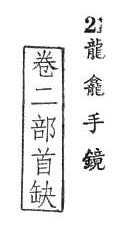 2 龍龕手鏡
卷二部首缺